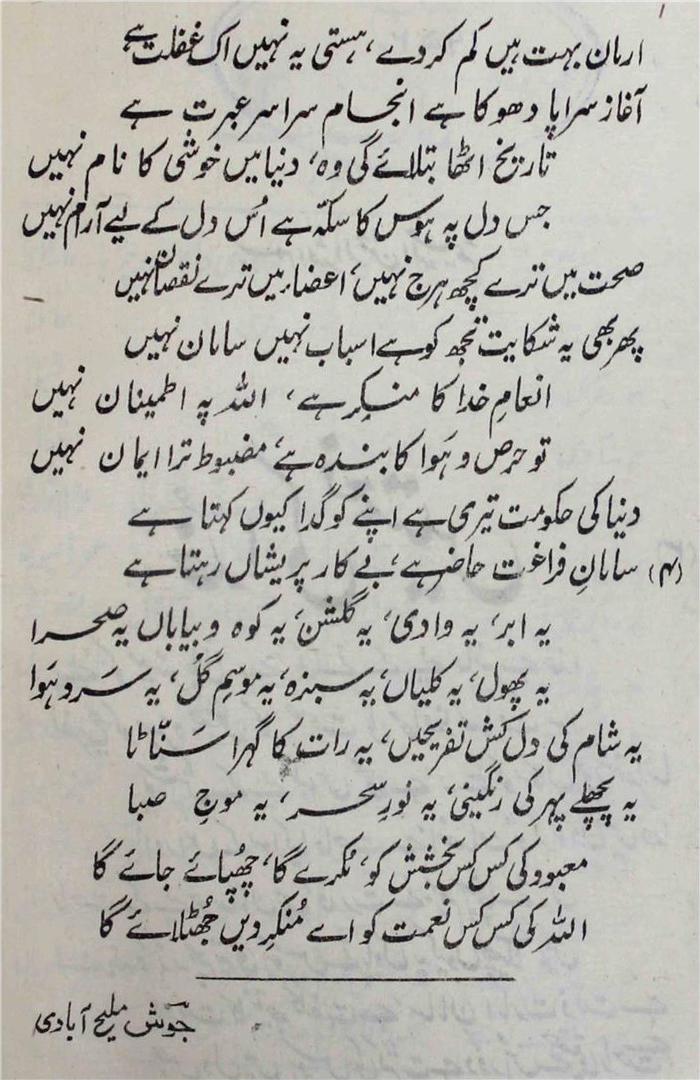 ارمان بہت ہیں کم کردے، ہستی یہ نہیں اک غفلت ہے
آغاز سراپا دھوکا ہے انجام سراسر عبرت ہے
تاریخ اٹھا بتلائے گی وہ، دنیا میں خوشی کا نام نہیں
جس دل پہ ہوس کا سکّہ ہے اُس دل کے لیے آرام نہیں
صحت میں ترے کچھ ہرج نہیں، اعضاء میں ترے نقصان نہیں
پھر بھی یہ شکایت تجھ کو ہے اسباب نہیں سامان نہیں
انعامِ خدا کا منکر ہے، اللہ پہ اطمینان نہیں
تو حرص و ہَوا کا بندہ ہے، مضبوط ترا ایمان نہیں
دنیا کی حکومت تیری ہے اپنے کو گدا کیوں کہتا ہے
(۴) سامانِ فراغت حاضر ہے، بے کار پریشاں رہتا ہے
یہ ابر، یہ وادی، یہ گلشن، یہ کوہ و بیاباں یہ صحرا
یہ پھول، یہ کلیاں، یہ سبزہ، یہ موسِم گُل، یہ سَرد ہَوا
یہ شام کی دل کش تفریحیں، یہ رات کا گہرا سنّاٹا
یہ پچھلے پہر کی رنگینی، یہ نورِ سحر، یہ موجِ صبا
معبود کی کس کس بخشش کو، مُکرے گا، چھُپائے جائے گا
اللہ کی کس کس نعمت کو اے مُنکرِ دیں جھُٹلائے گا
جوؔش ملیح آبادی